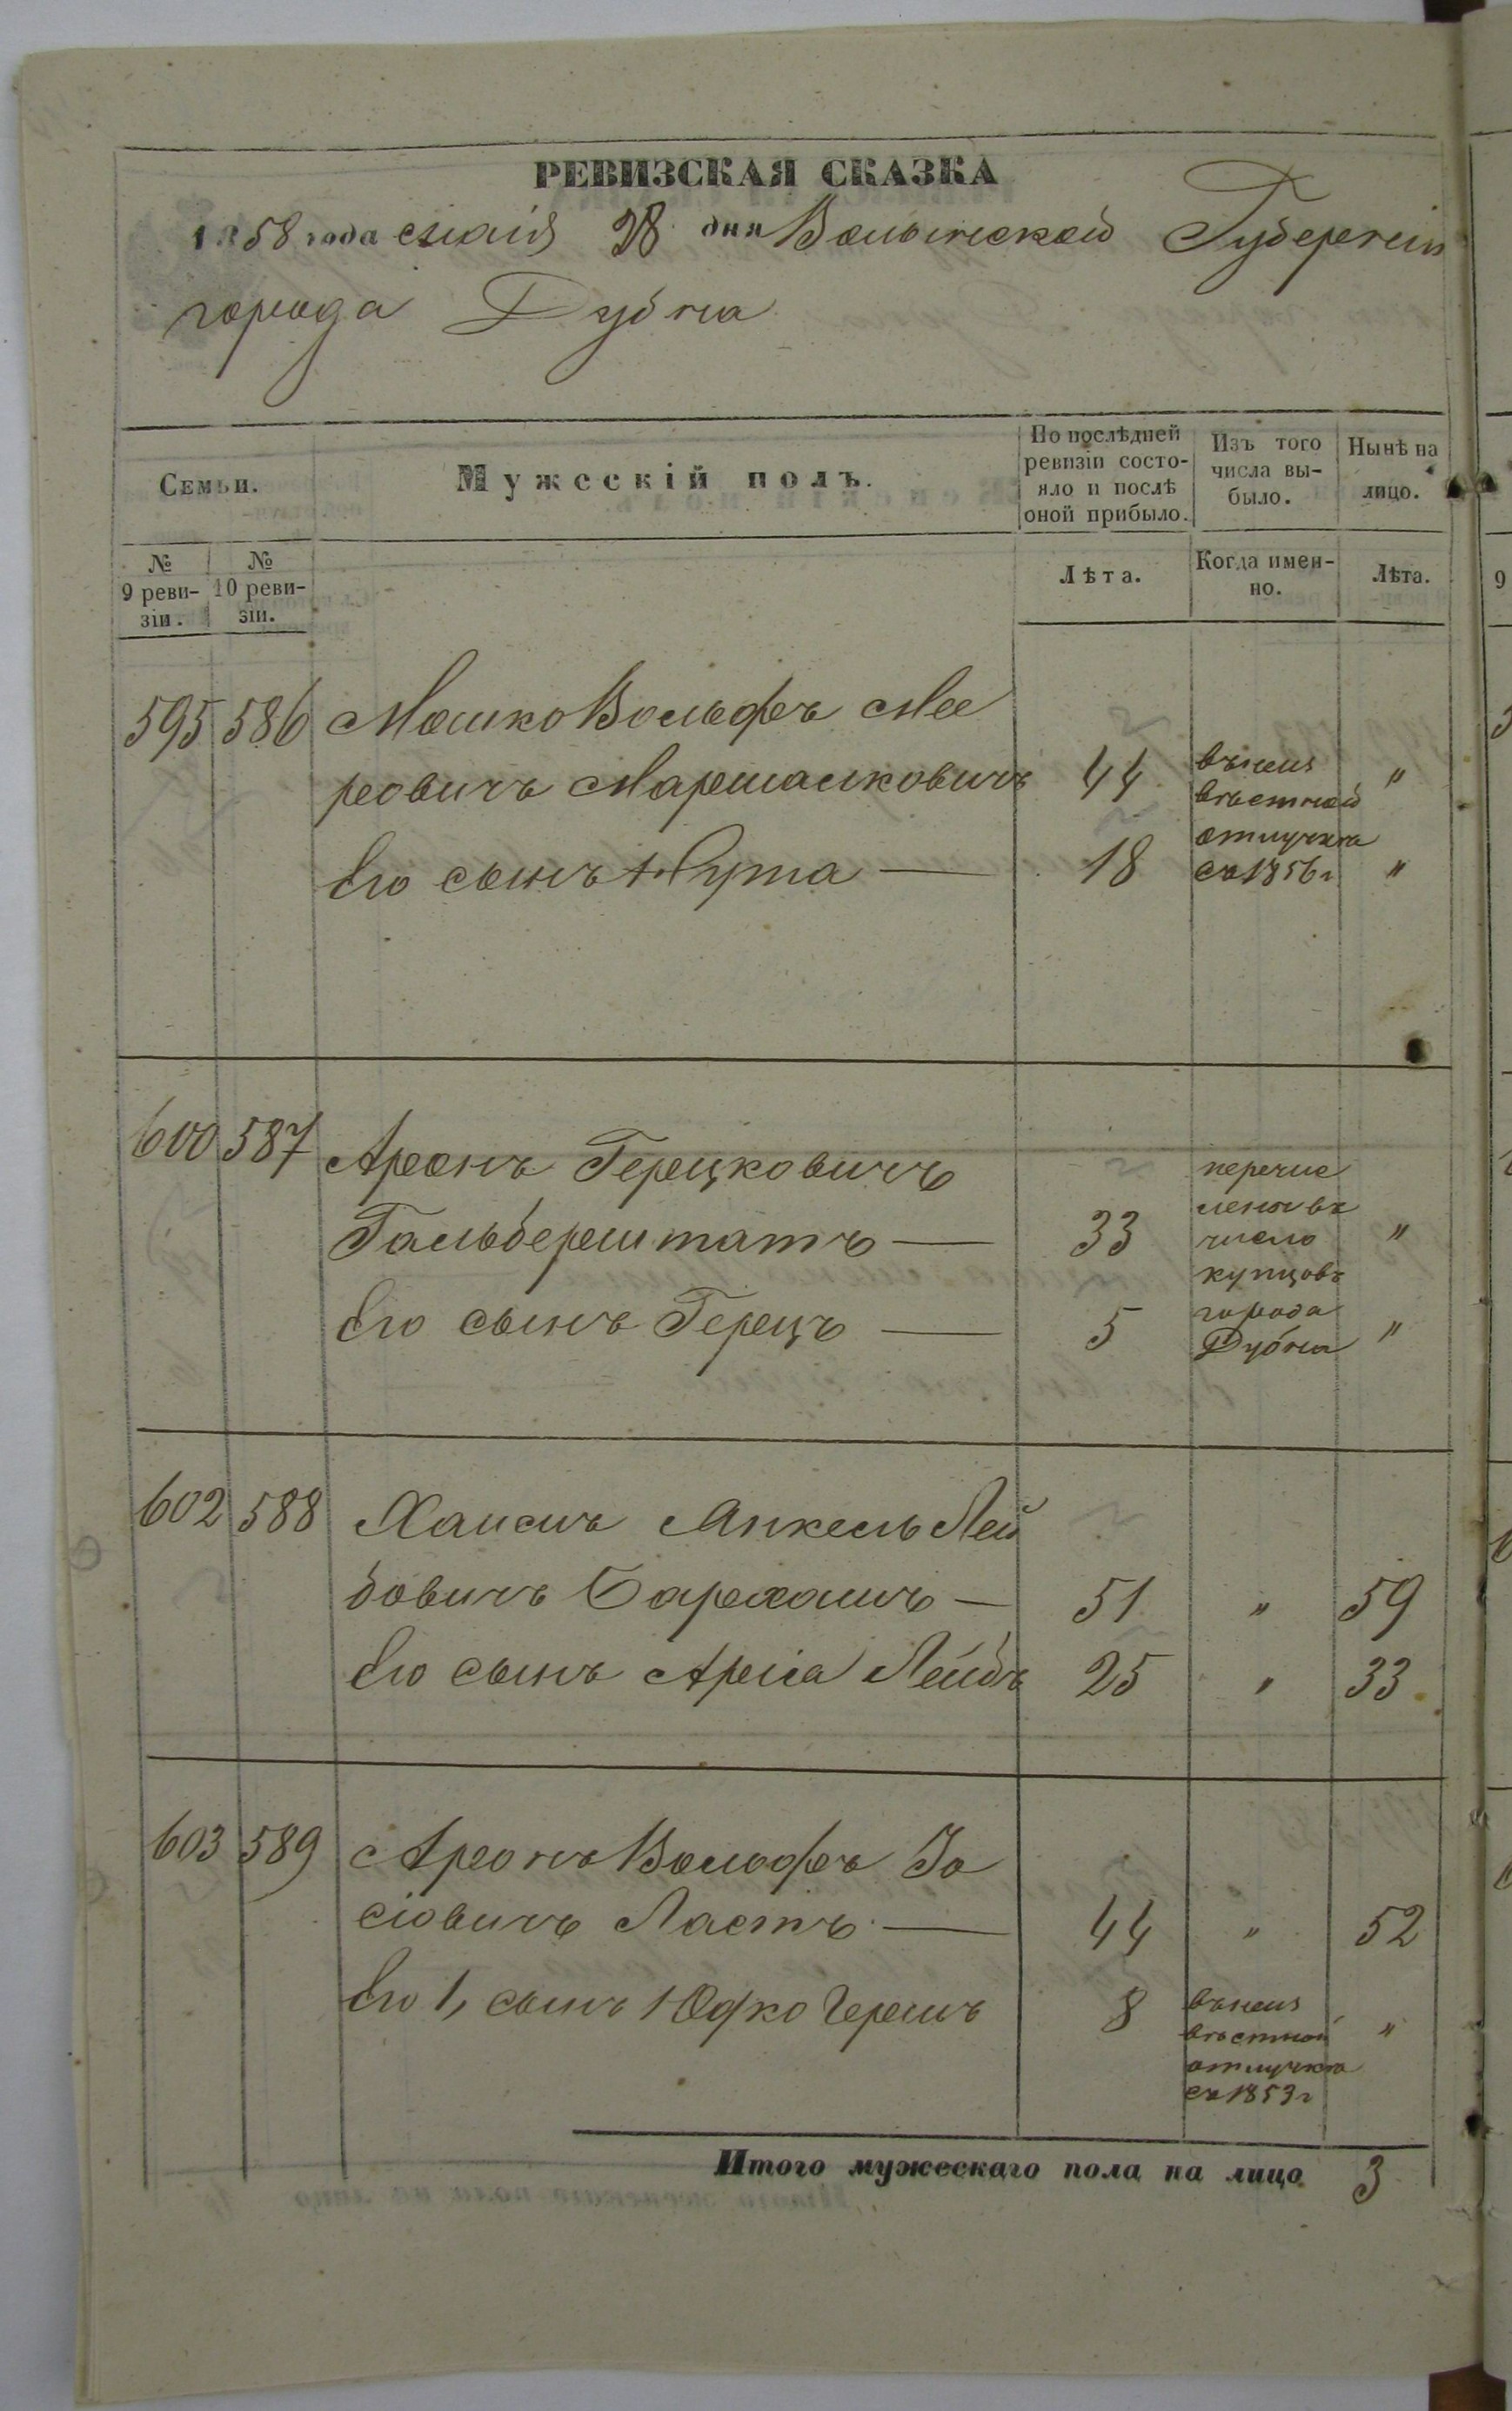 РЕВИЗСКАЯ СКАЗКА
1858 года маія 28 дня Волынской Губерніи
города Дубна
Семьи.
Мужескій полъ.
По послѣдней ревизіи состояло и послѣ оной прибыло.
Изъ того числа выбыло.
Нынѣ на лицо.
№ 9 ревизіи.
№ 10 ревизіи.
Лѣта.
Когда именно.
Лѣта.
595 586 Мошко Вольфъ Мее
ровичъ Маршалковичъ 44 въ неиз "
вѣстной
Его сынъ Нута — 18 отлучкѣ
съ 1856 г "
600 587 Аронъ Герецковичъ перечис
Гальберштатъ — 33 лены въ
число "
купцовъ
Его сынъ Герецъ — 5 города
Дубна "
602 588 Хаимъ Янкель Лей
бовичъ — 51 " 59
Его сынъ Аріа Лейбъ 25 " 33
603 589 Аронъ Вольфъ Іо
сіовичъ Ластъ — 44 " 52
Его 1, сынъ Юдко Гершъ 8 въ неиз
вѣстной "
отлучкѣ
съ 1853 г
Итого мужескаго пола на лицо 3